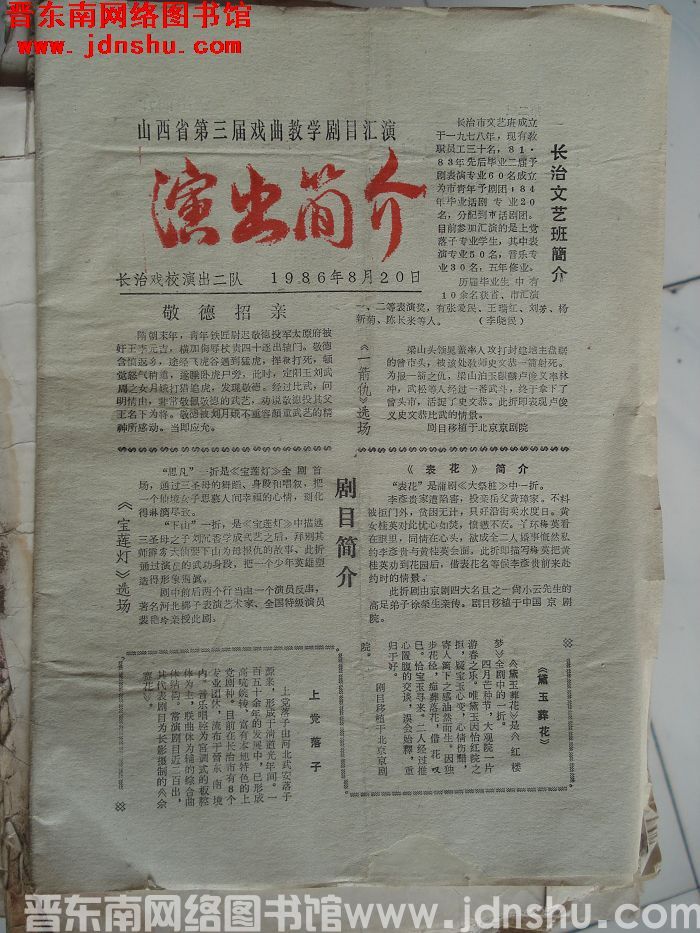 晋东南网络图书馆
www.jdnshu.com
山西省第三届戏曲教学剧目汇演
演出简介
长治戏校演出二队　1986年8月20日
长治文艺班簡介
长治市文艺班成立
于一九七八年，现有教
职员工三十名，81·
83年先后毕业二届予
剧表演专业60名成立
为市青年予剧团；84
年毕业话剧专业20
名，分配到市话剧团。
目前参加汇演的是上党
落子专业学生，其中表
演专业50名，音乐专
业30名，五年修业。
历届毕业生中有
10余名获省、市汇演
一、二等表演奖，有张爱民、王瑞红、刘芳、杨
新菊、陈长来等人。　（李晓民）
敬德招亲
隋朝末年，青年铁匠尉迟敬德投军太原府被
奸王李元吉，横加侮辱杖责四十逐出辕门。敬德
含愤返乡，途经飞虎谷遇到猛虎，挥拳打死，顿
王名下为将。敬德被刘月娥不重容颜重武艺的精
神所感动。当即应允。
《一箭仇》选场
的曾市头，被该处教师史文恭一箭射死。
为报一箭之仇，梁山泊玉麒麟卢俊义率林
冲，武松等人经过一番武斗，终于拿下了
曾头市，活捉了史文恭。此折即表现卢俊
义史文恭比武的情景。
剧目移植于北京京剧院
剧目简介
《宝莲灯》选场
“思凡”一折是《宝莲灯》全剧首
场，通过三圣母的舞蹈、身段和唱敍，把
一个仙境女子思慕人间幸福的心情，刻化
得淋漓尽致。
“下山”一折，是《宝莲灯》中描述
三圣母之子刘沉香学成武艺之后，拜别其
师霹雳大仙要下山为母报仇的故事。此折
通过演员的武功身段，把一个少年英雄塑
造得形象逼真。
剧中前后两个行当由一个演员反串，
著名河北梆子表演艺术家、全国特级演员
裴艳玲亲授此剧。
《表花》简介
“表花”是蒲剧《大祭桩》中一折。
李彦贵家遭陷害，投亲岳父黄璋家。不料
被拒门外，贫困无计，只好沿街卖水度日。黄
女桂英对此忧心如焚，愤懑不安。丫环梅英看
在眼里，同情在心头，欲成全二人婚事慨然私
约李彦贵与黄桂英会面。此折即描写梅英把黄
桂英劝到花园后，借表花名等候李彦贵前来赴
约时的情景。
此折剧由京剧四大名旦之一荀小云先生的
高足弟子徐荣生亲传。剧目移植于中国京剧
院。
《黛玉葬花》
《黛玉葬花》是《红楼
梦》全剧中的一折。
四月芒种节，大观院一片
游春之乐。唯黛玉因怡红院之
拒，疑宝玉心变，心情伤黯，
寄人篱下之感油然而生。因独
步花径，痴葬落花，借花叹
已。恰宝玉寻来。二人经过推
心置腹的交谈，误会始释，重
归于好。
剧目移植于北京京剧
院。
上党落子
上党落子由河北武安落子
源来，形成于清道光年间。一
百五十余年的发展中，已形成
高吭婉转，富有本地特色的上
党剧种。目前在长治市有8个
专业团伙，流布于晋东南境
内。音乐唱腔为宫调式的板腔
体为主，联曲体为辅的综合曲
体结构。常演剧目近二百出，
其代表剧目为长影摄制的《佘
赛花》。
晋东南网络图书馆www.jdnshu.com